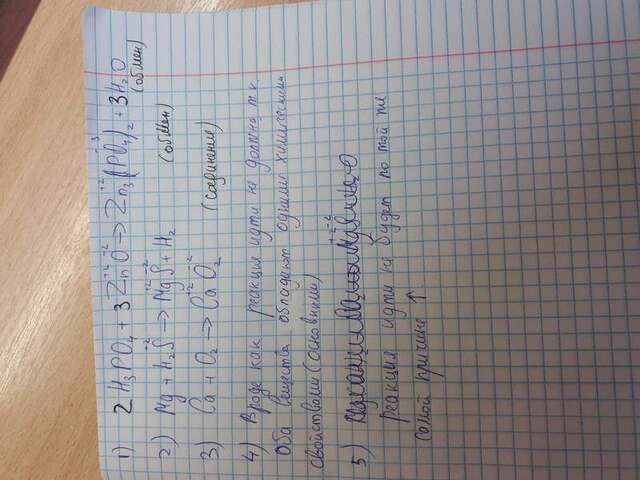 1) 2 H₃PO₄ + 3 Zn⁺²O⁻² → Zn₃⁺²(PO₄)₂⁻³ + 3H₂O
(обмен)
2) Mg + H₂S⁻² → Mg⁺²S⁻² + H₂ (обмен)
3) Ca + O₂ → Ca⁺²O₂⁻² (соединение)
4) Вроде как реакция идти не должна, т.к.
оба вещества обладают одними химическими
свойствами (основными)
5)
реакция идти не будет по той же
самой причине ↑